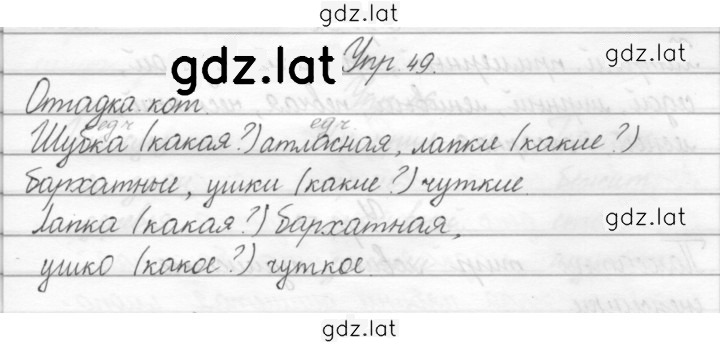 gdz.lat
gdz.lat Упр 49.
Отгадка: кот.
ед.ч ед.ч
Шубка (какая?) атласная, лапки (какие?)
бархатные, ушки (какие?) чуткие.
gdz.lat
Лапка (какая?) бархатная,
ушко (какое?) чуткое.
gdz.lat